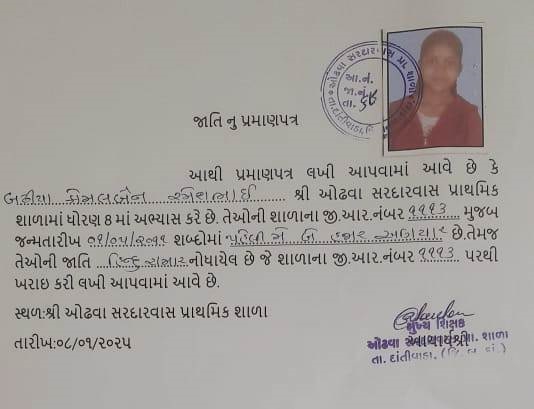 જાતિ નુ પ્રમાણપત્ર
આથી પ્રમાણપત્ર લખી આપવામાં આવે છે કે
રમેશભાઈ શ્રી ઓઢવા સરદારવાસ પ્રાથમિક
શાળામાં ધોરણ 8 માં અભ્યાસ કરે છે. તેઓની શાળાના જી.આર.નંબર ૧૧૧૩ મુજબ
જન્મતારીખ ૦૧/૦૫/૨૦૧૧ શબ્દોમાં પહેલી મે બે હજાર અગિયાર છે.તેમજ
તેઓની જાતિ હિન્દુ નોધાયેલ છે જે શાળાના જી.આર.નંબર ૧૧૧૩ પરથી
ખરાઇ કરી લખી આપવામાં આવે છે.
સ્થળ:શ્રી ઓઢવા સરદારવાસ પ્રાથમિક શાળા
તારીખ:૦૮/૦૧/૨૦૨૫
મુખ્ય શિક્ષક
ઓઢવા પ્રા. શાળા
આચાર્યશ્રી
તા. દાંતીવાડા,